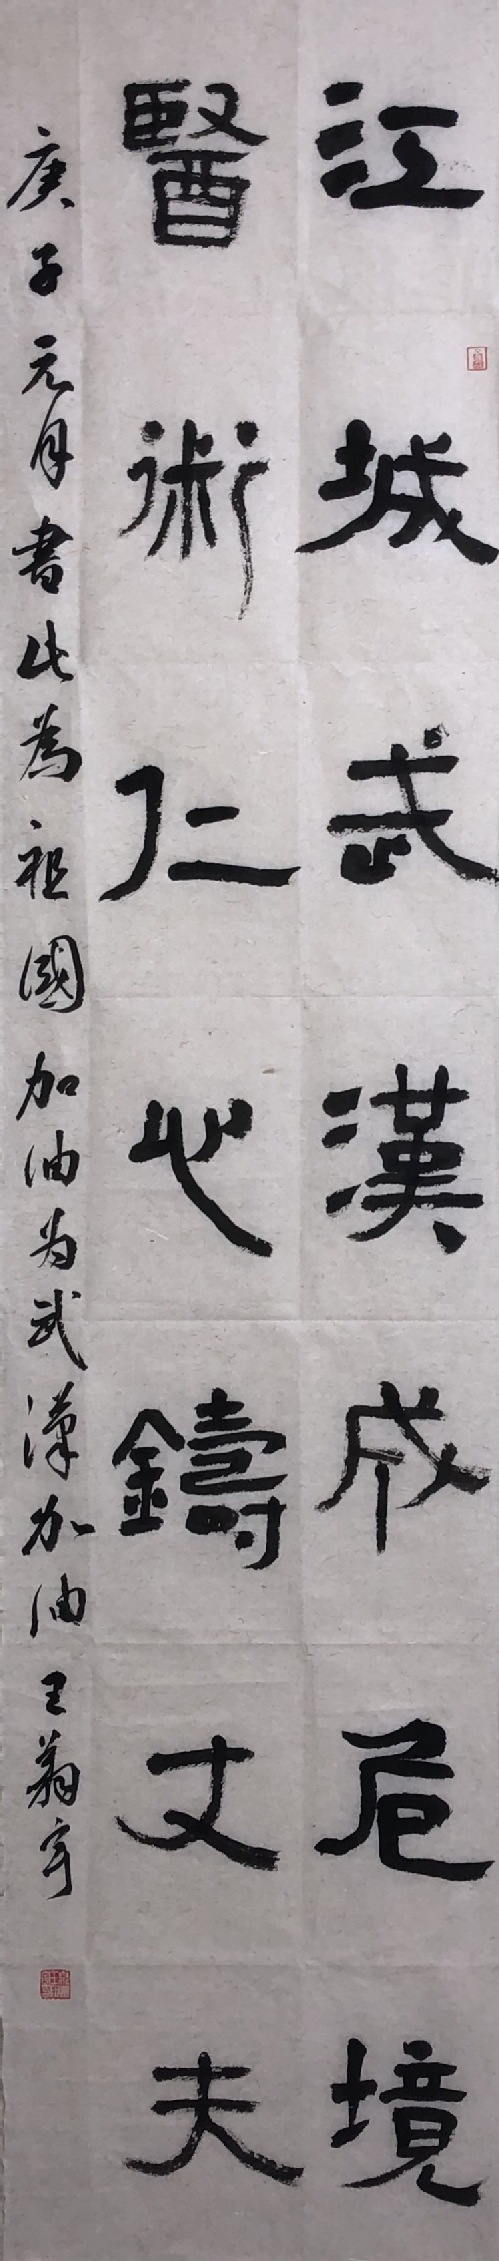 江城武漢成危境
醫術仁心鑄丈夫
庚子元月書此為祖國加油为武漢加油王翰宇